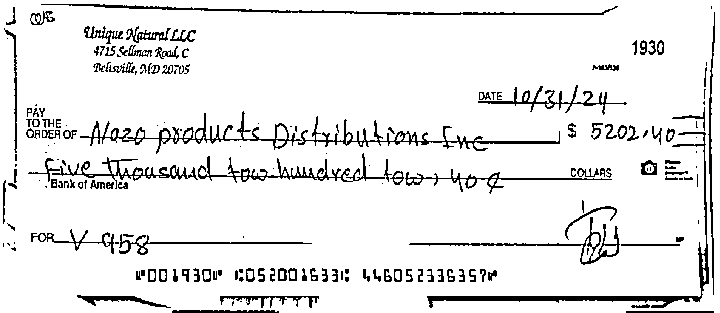 Unique Natural LLC
4715 Sellman Road, C
Beltsville, MD 20705
1930
DATE 10/31/24
PAY
TO THE
ORDER OF Nozo products Distributions Inc $ 5202.40
five thousand tow hundred tow, 40 ¢ DOLLARS
Bank of America
FOR V 958
⑈001930⑈ ⑆052001633⑆ 446052336357⑈